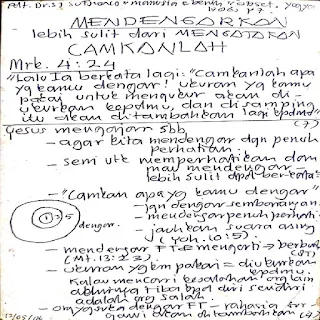 MENDENGARKAN
lebih sulit dari MENGATAKAN
CAMKANLAH
Mrk. 4:24
"Lalu Ia berkata lagi: "Camkanlah apa
yg kamu dengar! Ukuran yg kamu
pakai untuk mengukur akan di-
ukurkan kepdmu, dan di samping
itu akan ditambahkan lagi kpdmu"
Yesus mengajar sbb
- agar kita mendengar dgn penuh
perhatian.
- seni utk memperhatikan dan
mau mendengar
lebih sulit dpd berkata²
- "Camkan apa yg kamu dengar"
- jgn dengar sembarangan
- mendengar penuh perhatian
- jauhkan suara asing
(Yoh. 10:5).
dengar
- mendengar FT = mengerti → berbuah
(Mt. 13:23).
- ukuran yg km pakai = diukurkan
kepdmu.
Kalau mencari kesalahan org lain
akhirnya tiba pd diri sendiri
adalah org salah.
FT - rahasia
ditambahkan